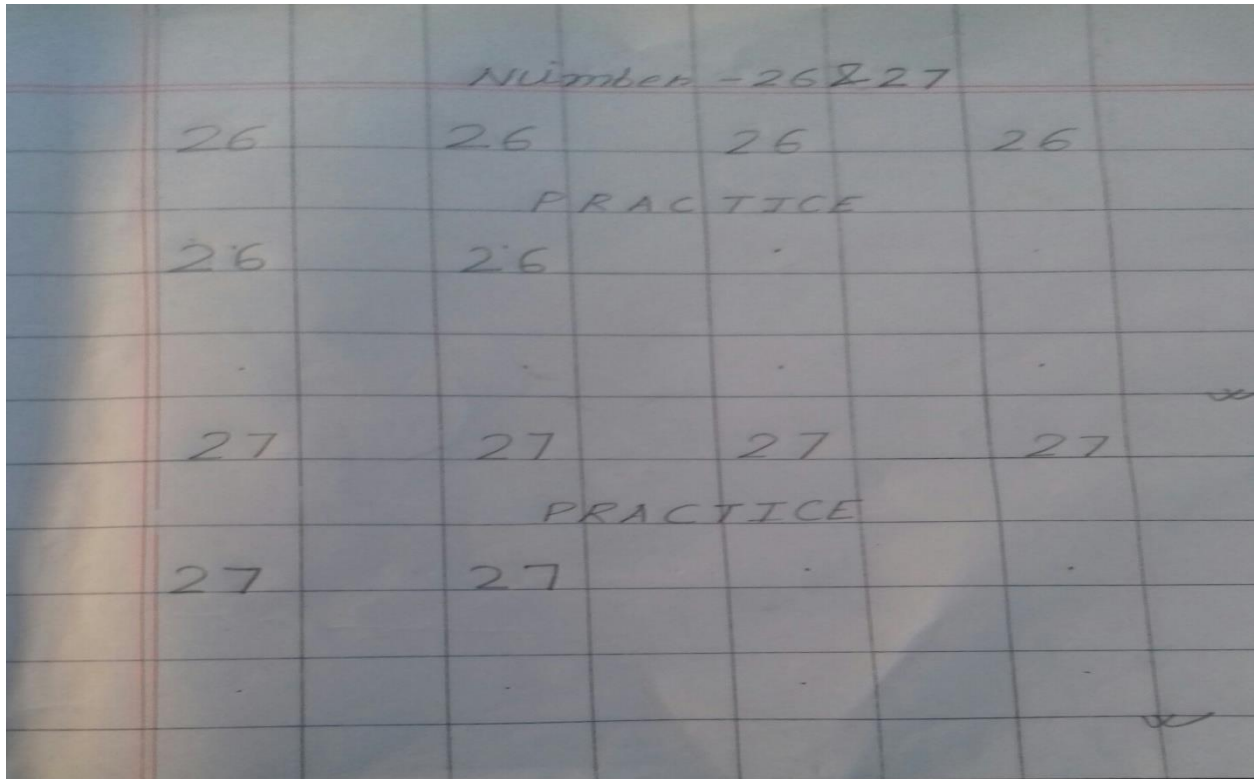 Number - 26 & 27
26 26 26 26
PRACTICE
26 26 . .
. . . .
27 27 27 27
PRACTICE
27 27 . .
. . . .